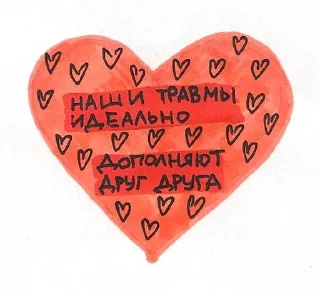 НАШИ ТРАВМЫ
ИДЕАЛЬНО
ДОПОЛНЯЮТ
ДРУГ ДРУГА